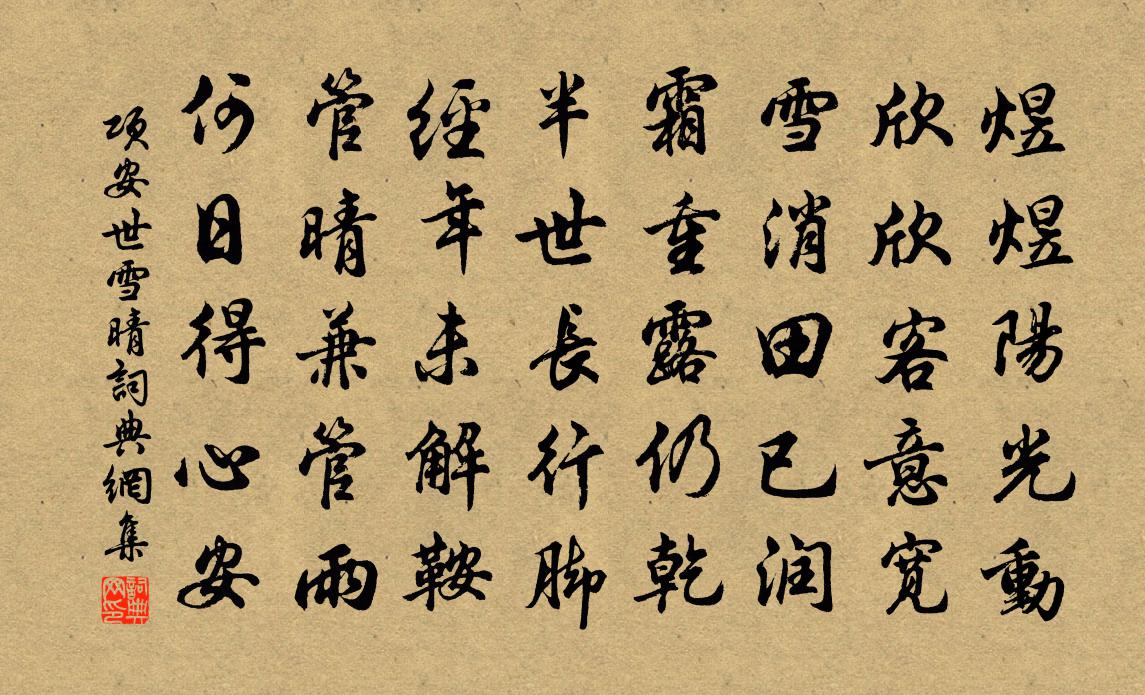 煜煜陽光動
欣欣客意寬
雪消田已润
霜重露仍乾
半世長行脚
經年未解鞍
管晴兼管雨
何日得心安
項安世雪晴詞典網集
詞典網印